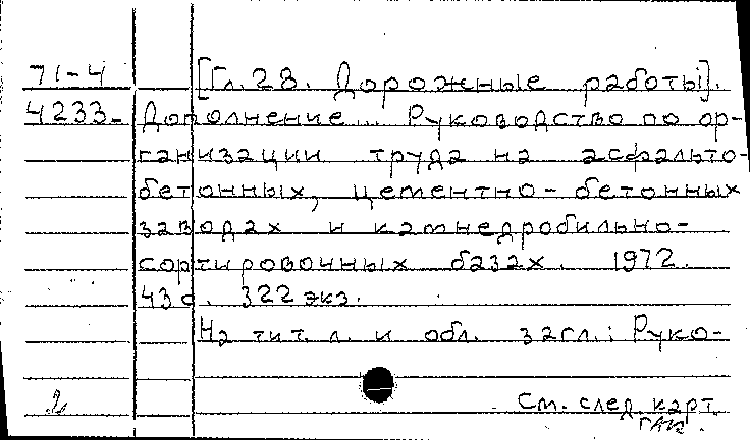 71-4 [Гл. 28. Дорожные работы].
4233- Дополнение... Руководство по ор-
ганизации труда на асфальто-
бетонных, цементно-бетонных
заводах и камнедробильно-
сортировочных базах. 1972.
43 с. 322 экз.
На тит. л. и обл. загл.: Руко-
2 См. след. карт.